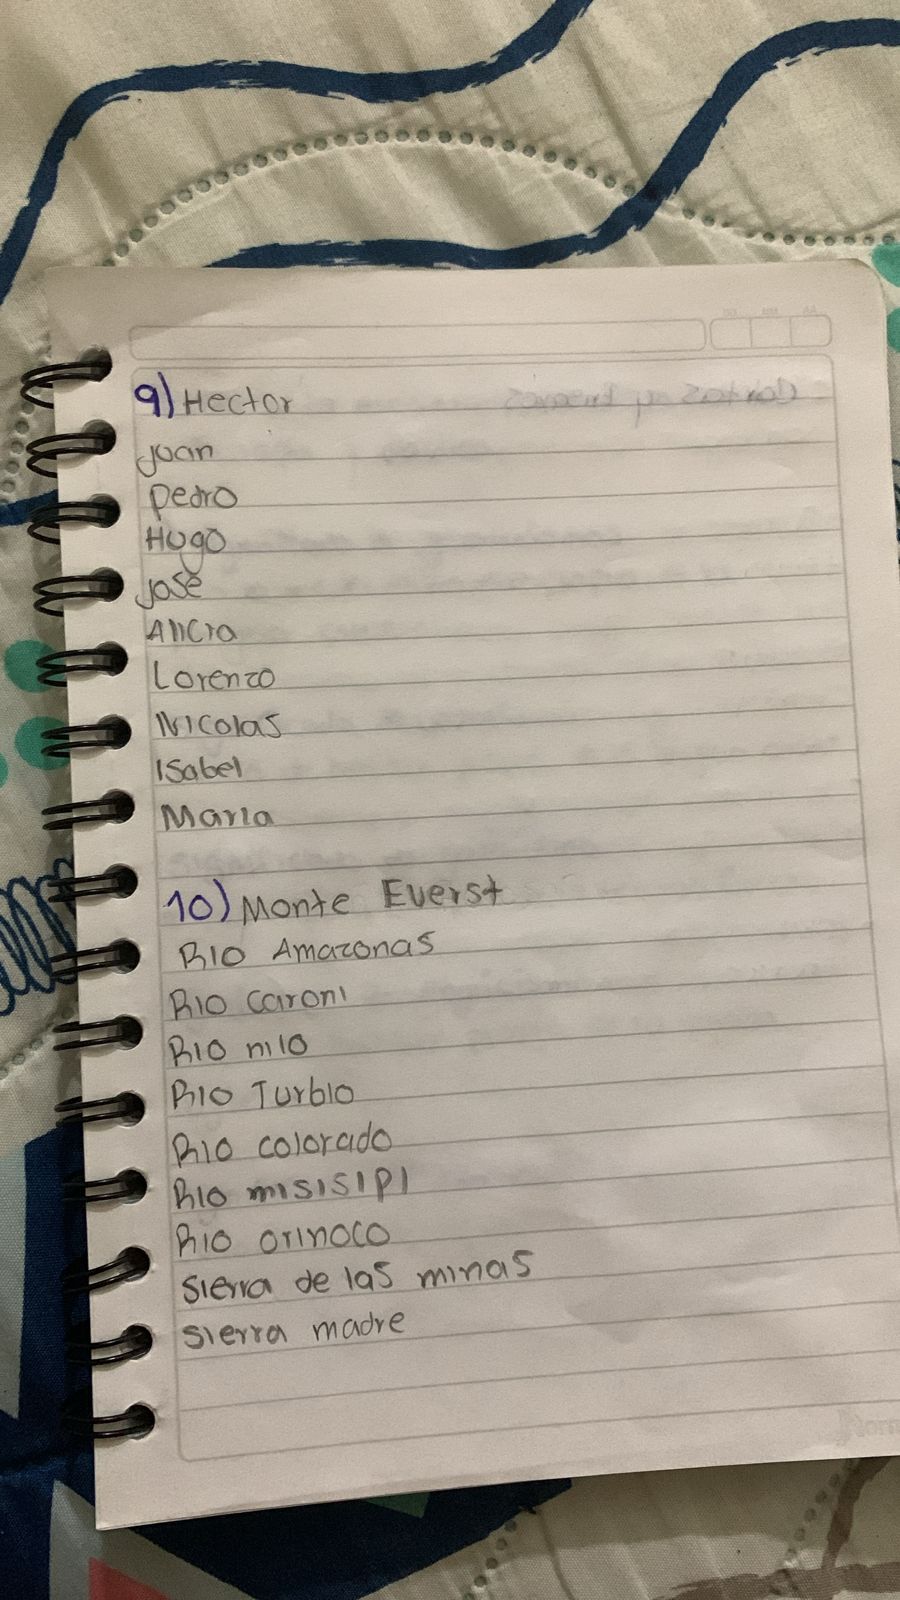 9) Hector
Juan
Pedro
Hugo
José
Alicia
Lorenzo
Nicolas
Isabel
Maria
10) Monte Everst
Rio Amazonas
Rio caroni
Rio nilo
Rio Turbio
Rio colorado
Rio misisipi
Rio orinoco
Sierra de las minas
Sierra madre